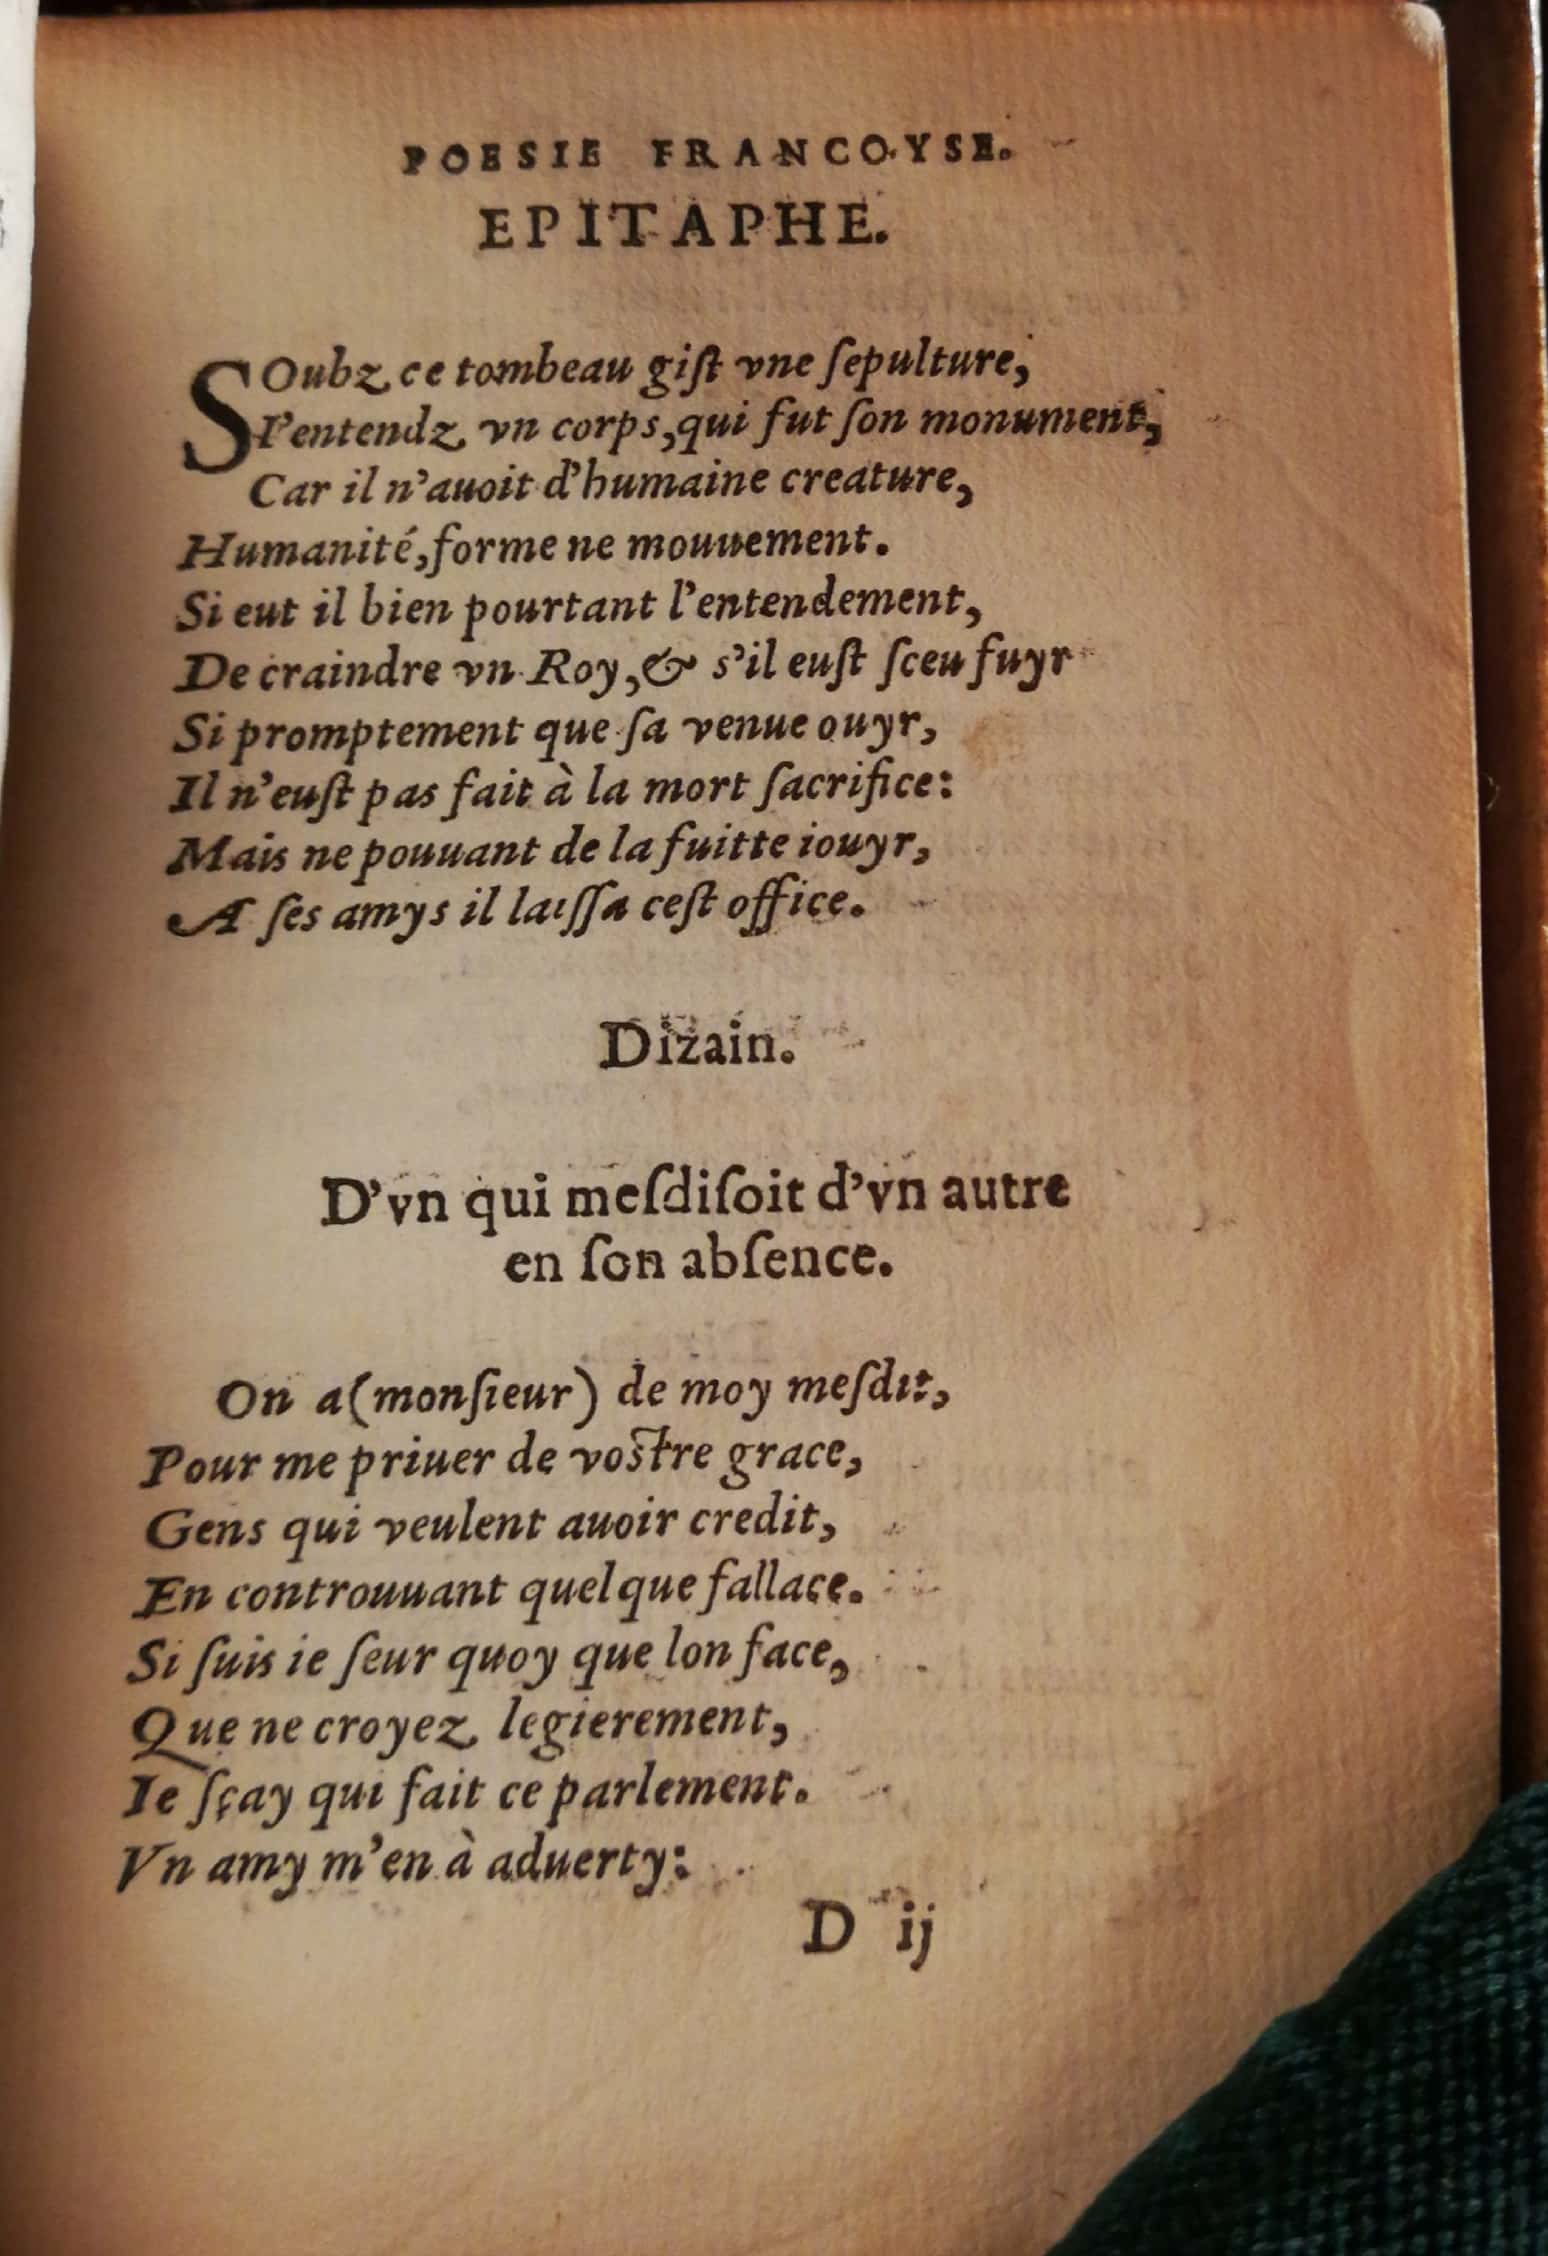 POESIE FRANCOYSE.
EPITAPHE.
SOubz ce tombeau giſt vne ſepulture,
I'entendz vn corps, qui fut ſon monument,
Car il n'auoit d'humaine creature,
Humanité, forme ne mouuement.
Si eut il bien pourtant l'entendement,
De craindre vn Roy, & s'il euſt ſceu fuyr
Si promptement que ſa venue ouyr,
Il n'euſt pas fait à la mort ſacrifice:
Mais ne pouuant de la fuitte iouyr,
A ſes amys il laiſſa ceſt office.
Dizain.
D'vn qui meſdiſoit d'vn autre
en ſon abſence.
On a (monſieur) de moy meſdit,
Pour me priuer de vostre grace,
Gens qui veulent auoir credit,
En controuuant quelque fallace.
Si ſuis ie ſeur quoy que lon face,
Que ne croyez legierement,
Ie ſçay qui fait ce parlement.
Vn amy m'en à aduerty:
D ij